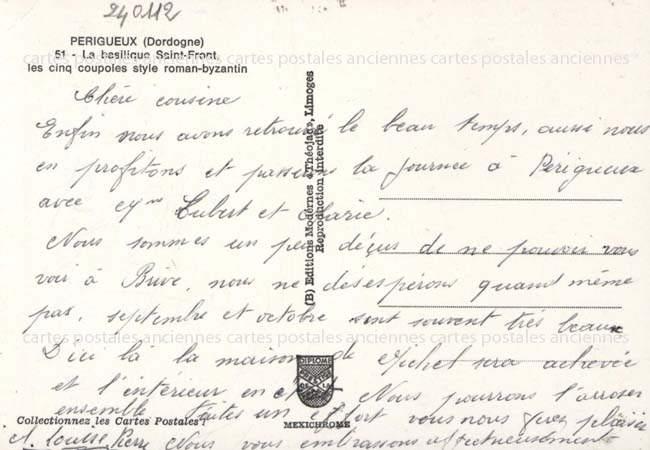 240112
PERIGUEUX (Dordogne)
51 - La basilique Saint-Front,
les cinq coupoles style roman-byzantin
cartes postales anciennes cartes postales anciennes cartes postales anciennes
Chère cousine
Enfin nous avons retrouvé le beau temps, aussi nous
en profitons et passons la journée à Périgueux
avec et Marie.
Nous sommes un peu déçus de ne pouvoir vous
voir à Brive, nous ne désespérons quand même
pas, septembre et octobre sont souvent très beaux
cartes postales anciennes cartes postales anciennes cartes postales anciennes
D'ici là la maison de Michel sera achevée
et l'intérieur en Nous pourrons l'arroser
ensemble Faites un effort vous nous ferez plaisir
Collectionnez les Cartes Postales !
Louise Pierre Nous vous embrassons affectueusement
(B) Editions Modernes «Théojac», Limoges
Reproduction interdite
DIPLOME
MEXICHROME